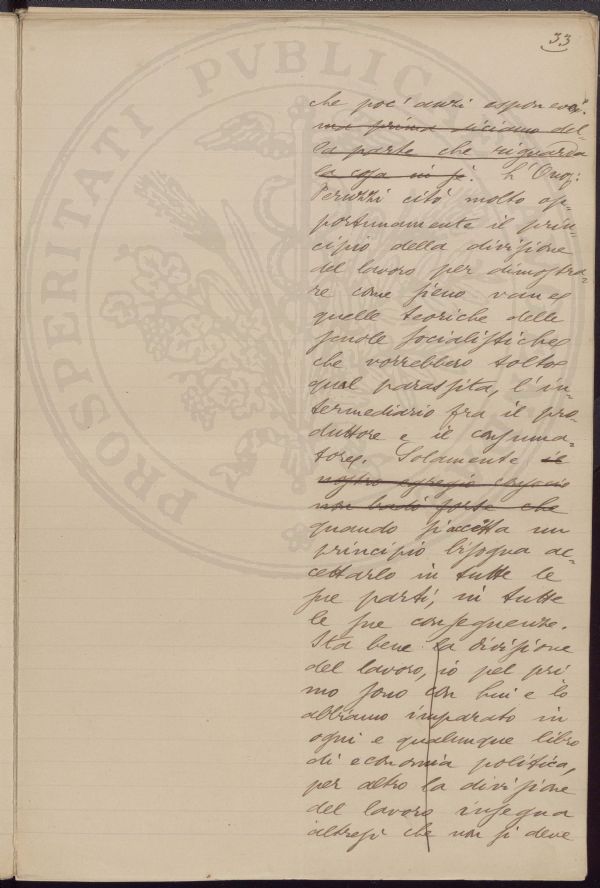 33
che poc'anzi esponevo.
ma prima diciamo del-
la parte che riguarda
la cosa in sè. L'Onor:
Peruzzi citò molto op-
portunamente il prin-
cipio della divisione
del lavoro per dimostra-
re come sieno vane
quelle teoriche delle
scuole socialistiche
che vorrebbero tolto
qual parassita, l'in-
termediario fra il pro-
duttore e il consuma-
tore. Solamente il
nostro egregio
non badò forse che
quando si accetta un
principio bisogna ac-
cettarlo in tutte le
sue parti, in tutte
le sue conseguenze.
Sta bene la divisione
del lavoro, io pel pri
mo sono con lui e lo
abbiamo imparato in
ogni e qualunque libro
di economia politica,
per altro la divisione
del lavoro insegna
altresì che non si deve
PROSPERITATI PVBLICA